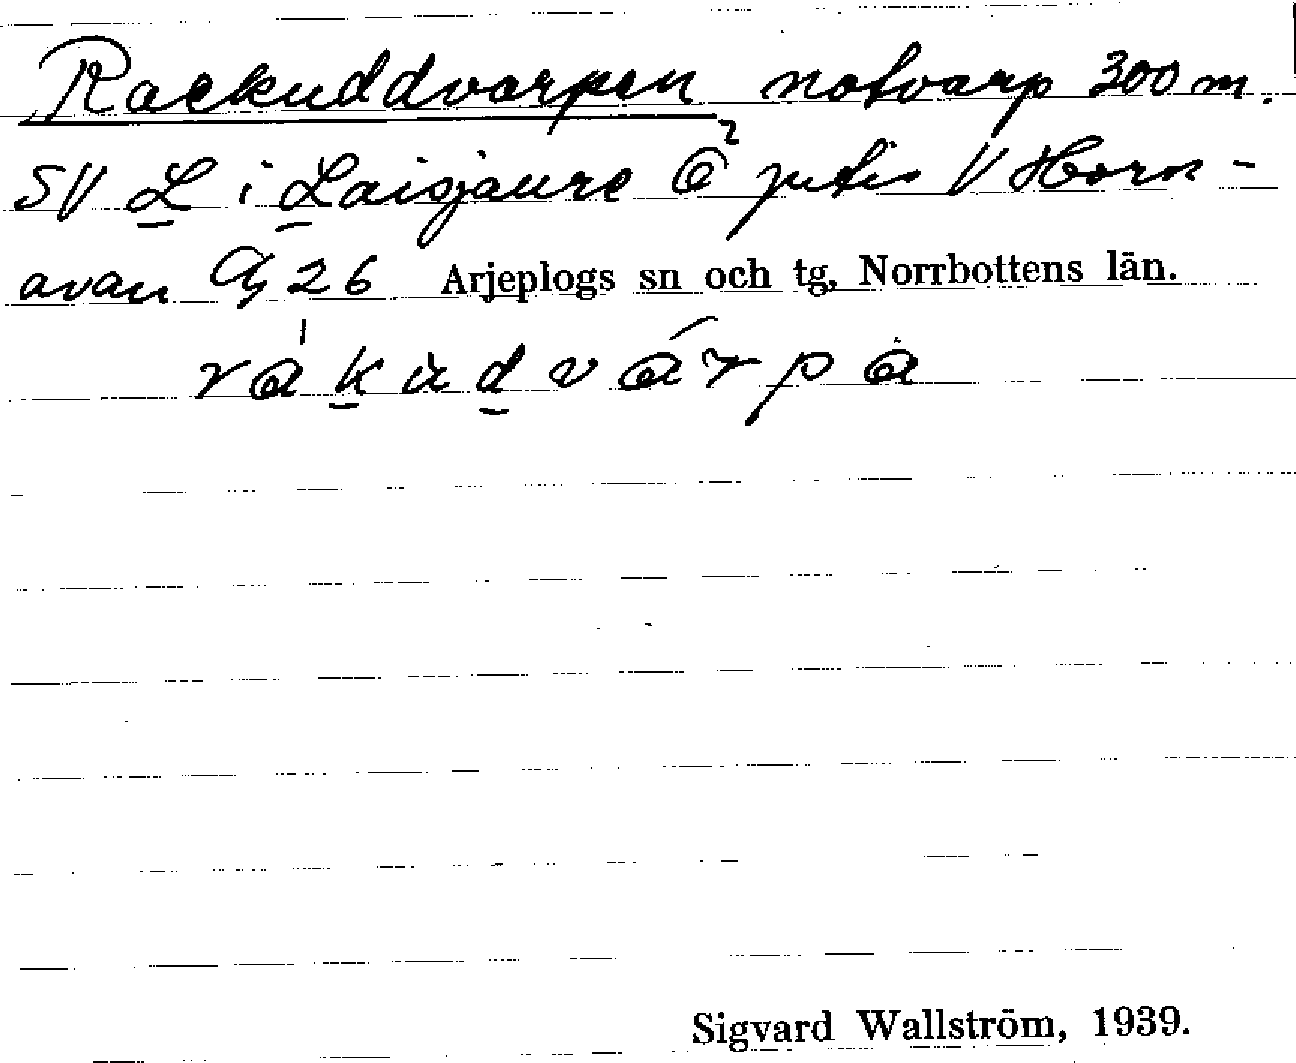 Rackuddvarpen notvarp 300 m.
SV L i Laisjaure V Horn-
avan 26 Arjeplogs sn och tg, Norrbottens län.
Sigvard Wallström, 1939.